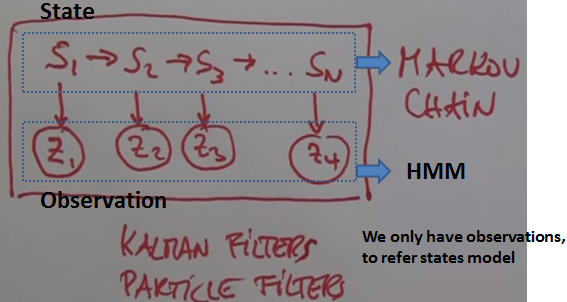 State
S1 → S2 → S3 → ... SN
MARKOV
CHAIN
Z1 Z2 Z3 Z4
HMM
Observation
KALMAN FILTERS
PARTICLE FILTERS
We only have observations,
to refer states model